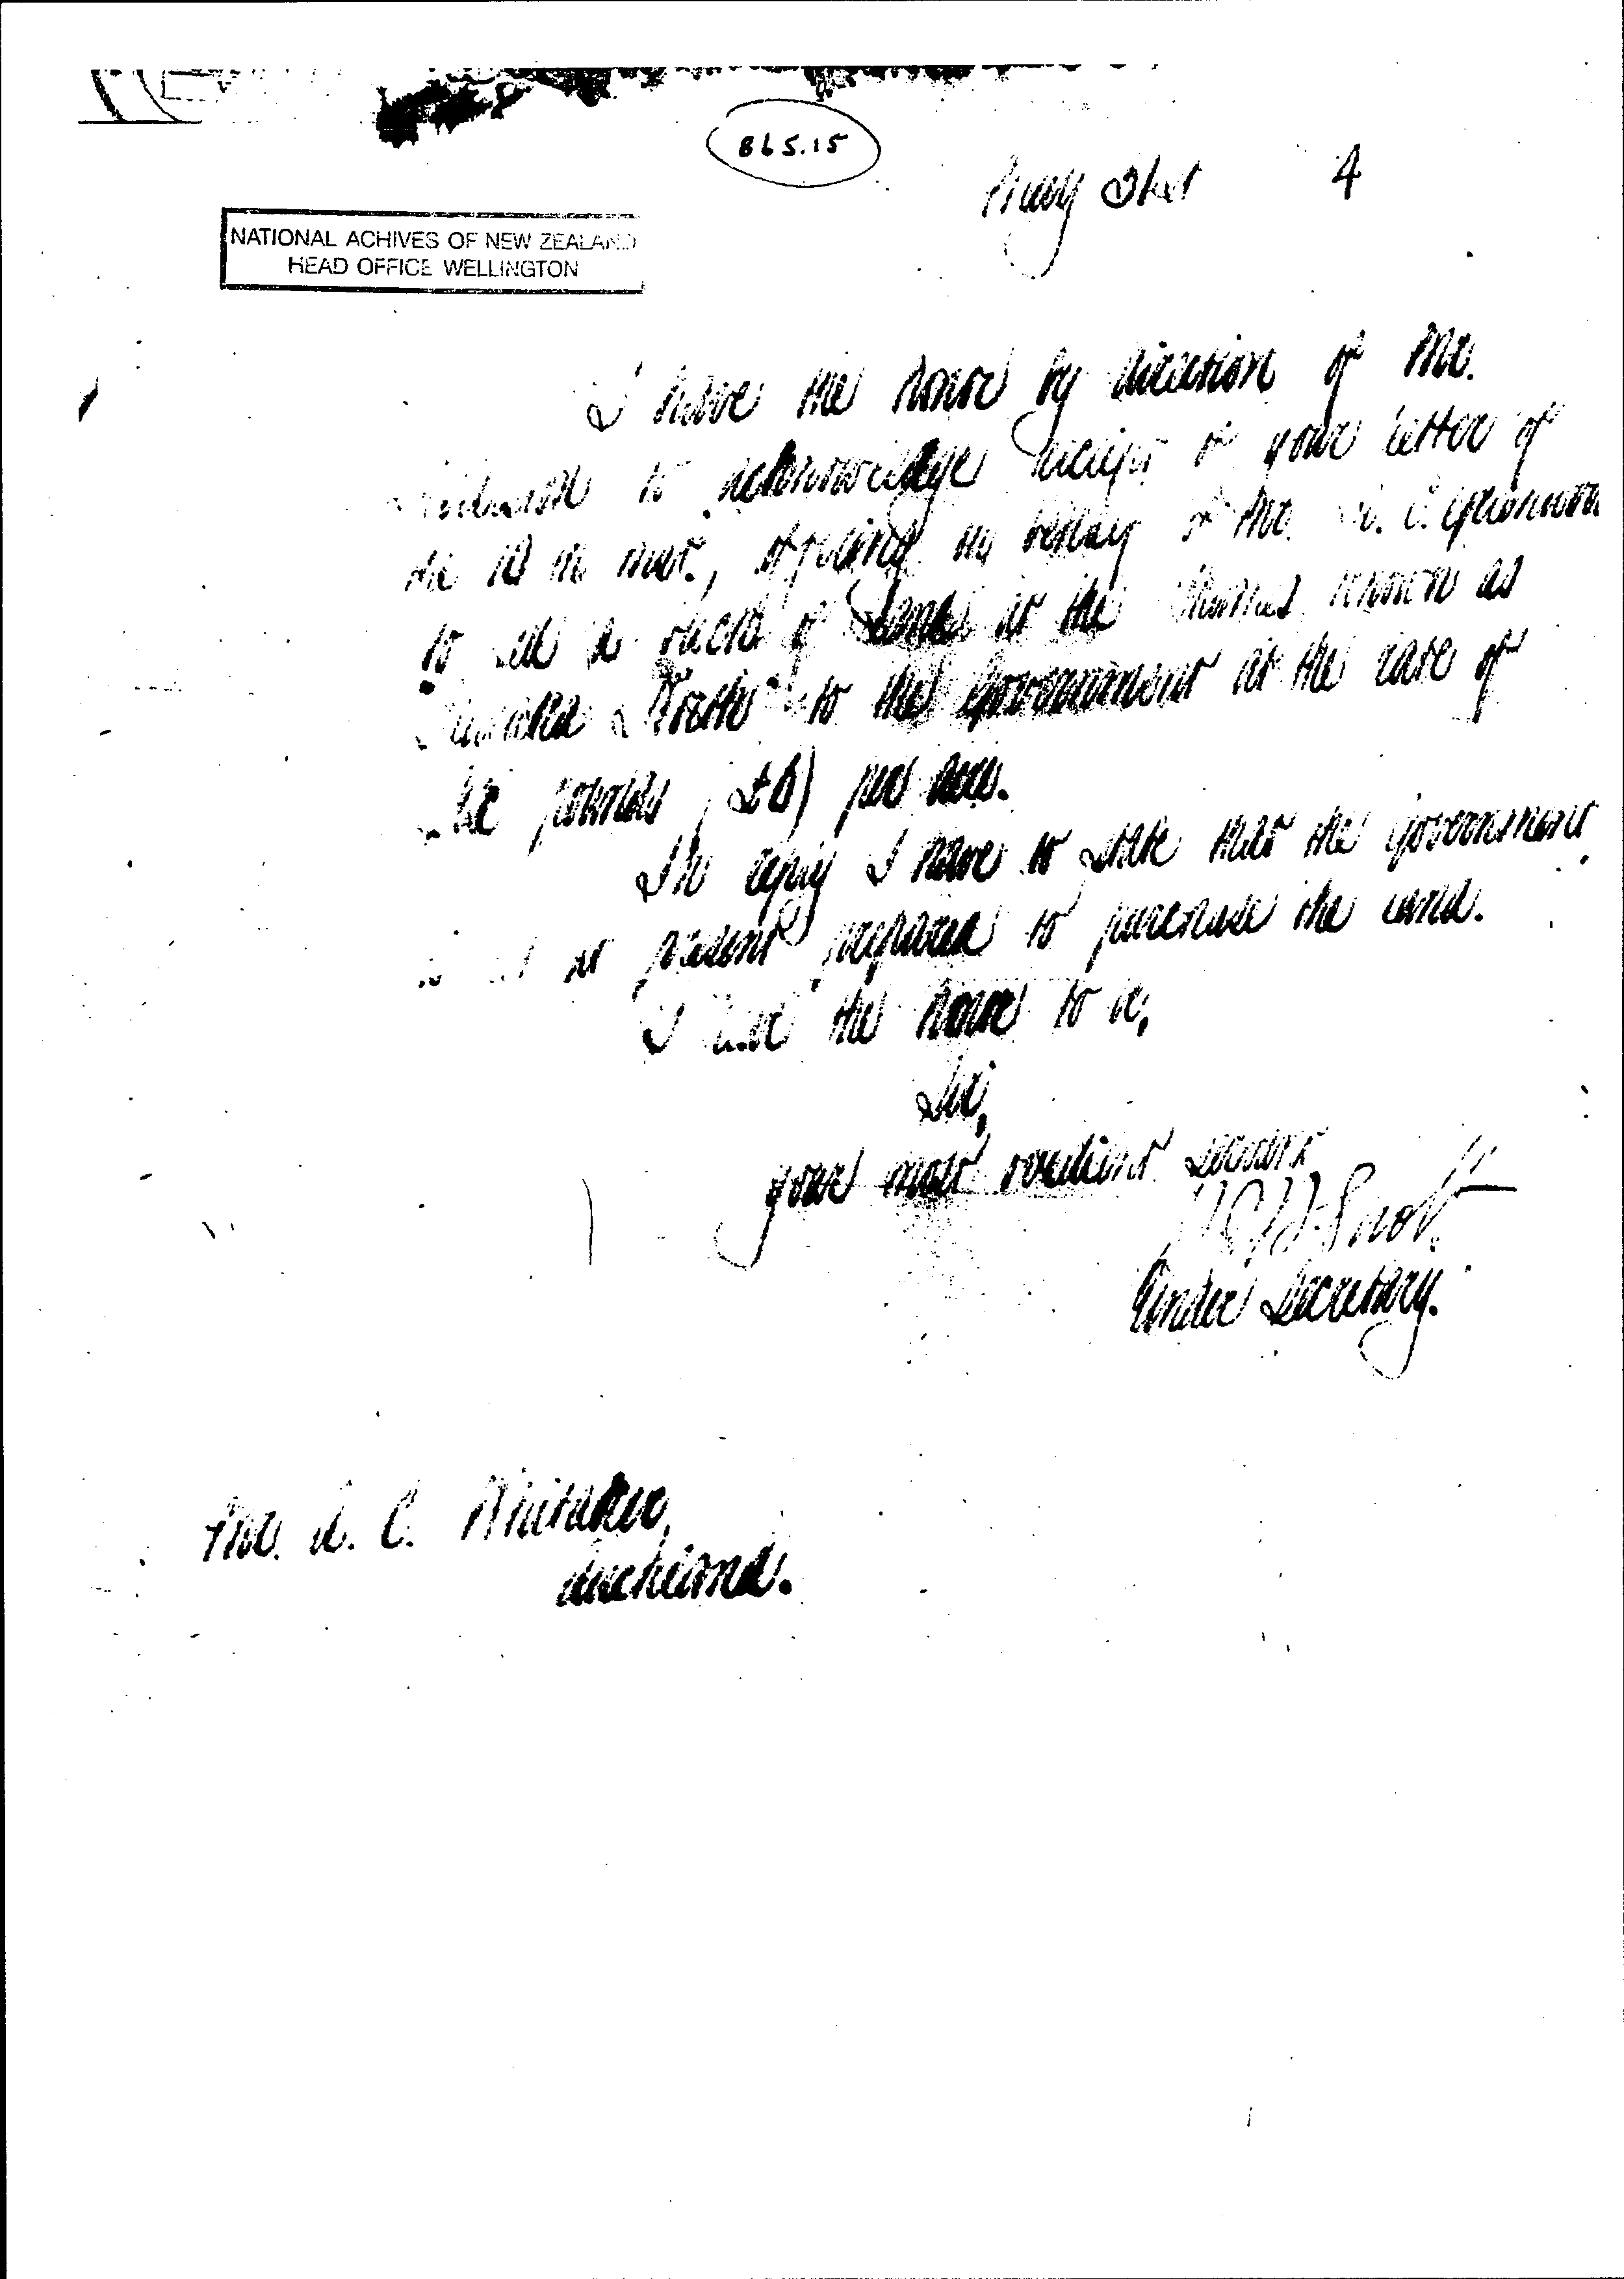 B65.15
May 21st 4
NATIONAL ACHIVES OF NEW ZEALAND
HEAD OFFICE WELLINGTON
I have the honor by direction of Mr.
to acknowledge receipt of your letter of
the 10th inst., offering on behalf of Mr.
to sell a block of land at the Thames known as
to the Government at the rate of
six pounds £6) per acre.
In reply I have to state that the Government
is not at present prepared to purchase the land.
I have the honor to be,
Sir,
Your most obedient servant
Under Secretary.
Mr. C. Whitaker,
Auckland.